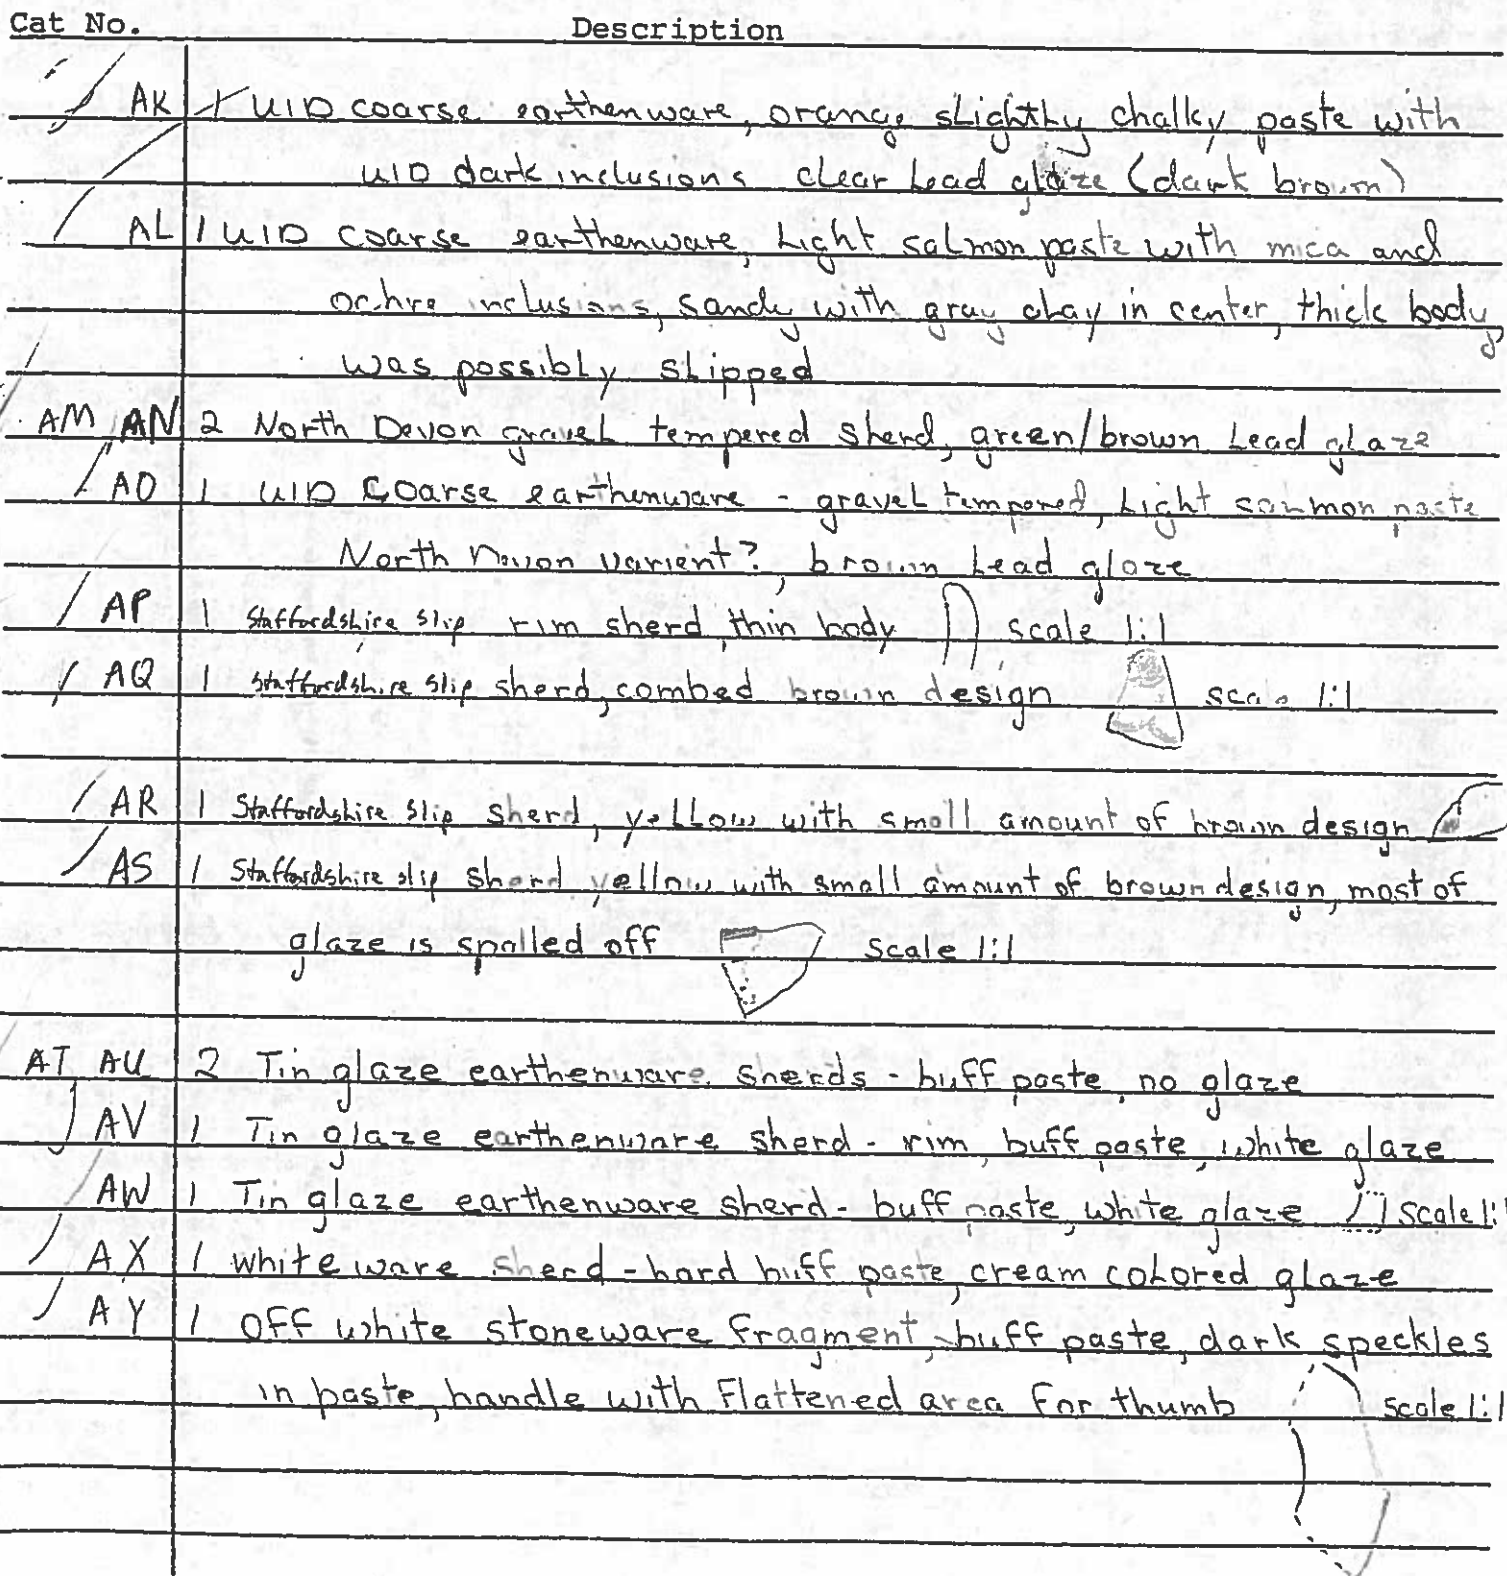 Cat No. Description
AK 1 UID coarse earthenware, orange slightly chalky paste with
UID dark inclusions clear lead glaze (dark brown)
AL 1 UID coarse earthenware, light salmon paste with mica and
ochre inclusions, sandy with gray clay in center, thick body,
was possibly slipped
AM AN 2 North Devon gravel tempered sherd, green/brown lead glaze
AO 1 UID Coarse earthenware - gravel tempered, light salmon paste
North Devon varient?, brown lead glaze
AP 1 Staffordshire slip rim sherd, thin body scale 1:1
AQ 1 Staffordshire slip sherd, combed brown design scale 1:1
AR 1 Staffordshire slip sherd, yellow with small amount of brown design
AS 1 Staffordshire slip sherd yellow with small amount of brown design, most of
glaze is spalled off scale 1:1
AT AU 2 Tin glaze earthenware sherds - buff paste, no glaze
AV 1 Tin glaze earthenware sherd - rim, buff paste, white glaze
AW 1 Tin glaze earthenware sherd - buff paste, white glaze scale 1:1
AX 1 white ware sherd - hard buff paste, cream colored glaze
AY 1 Off white stoneware fragment, buff paste, dark speckles
in paste, handle with flattened area for thumb scale 1:1